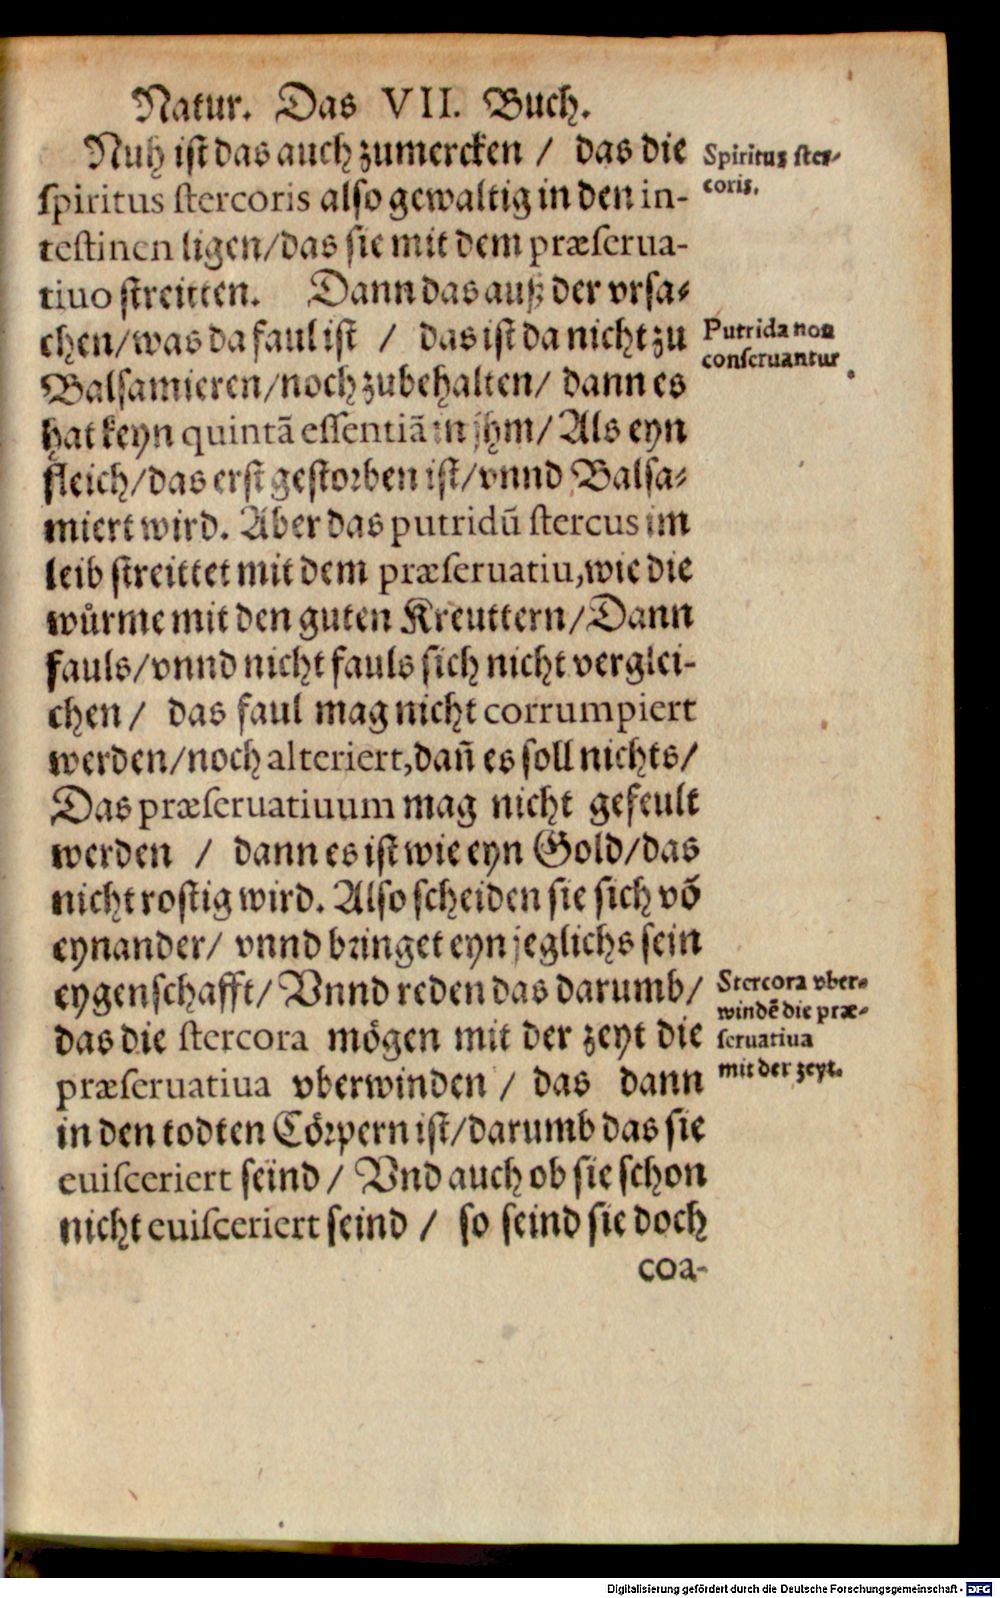 Natur. Das VII. Buch.
Nuh ist das auch zumercken / das die
spiritus stercoris also gewaltig in den in-
testinen ligen/das sie mit dem præserua-
tiuo streitten. Dann das auß der vrsa-
chen/was da faul ist / das ist da nicht zu
Balsamieren/noch zubehalten/ dann es
hat keyn quintã essentiã in jhm/ Als eyn
fleich/das erst gestorben ist/vnnd Balsa-
miert wird. Aber das putridũ stercus im
leib streittet mit dem præseruatiu,wie die
wůrme mit den guten Kreuttern/Dann
fauls/vnnd nicht fauls sich nicht verglei-
chen/ das faul mag nicht corrumpiert
werden/noch alteriert,dañ es soll nichts/
Das præseruatiuum mag nicht gefeult
werden / dann es ist wie eyn Gold/das
nicht rostig wird. Also scheiden sie sich võ
eynander/ vnnd bringet eyn jeglichs sein
eygenschafft/ Vnnd reden das darumb/
das die stercora mögen mit der zeyt die
præseruatiua vberwinden / das dann
in den todten Cörpern ist/darumb das sie
euisceriert seind / Vnd auch ob sie schon
nicht euisceriert seind / so seind sie doch
coa-
Spiritus ster-
coris.
Putrida non
conseruantur
Stercora vber-
windẽ die præ-
seruatiua
mit der zeyt.
Digitalisierung gefördert durch die Deutsche Forschungsgemeinschaft - DFG